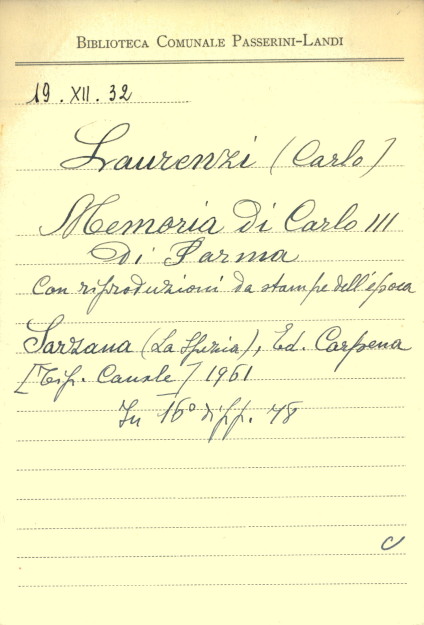 BIBLIOTECA COMUNALE PASSERINI-LANDI
19. XII. 32
Laurenzi (Carlo)
Memoria di Carlo III
di Parma
Con riproduzioni da stampe dell'epoca
Sarzana (La Spezia), Ed. Carpena
[Tip. Canale] 1961
In 16° di pp. 48
C